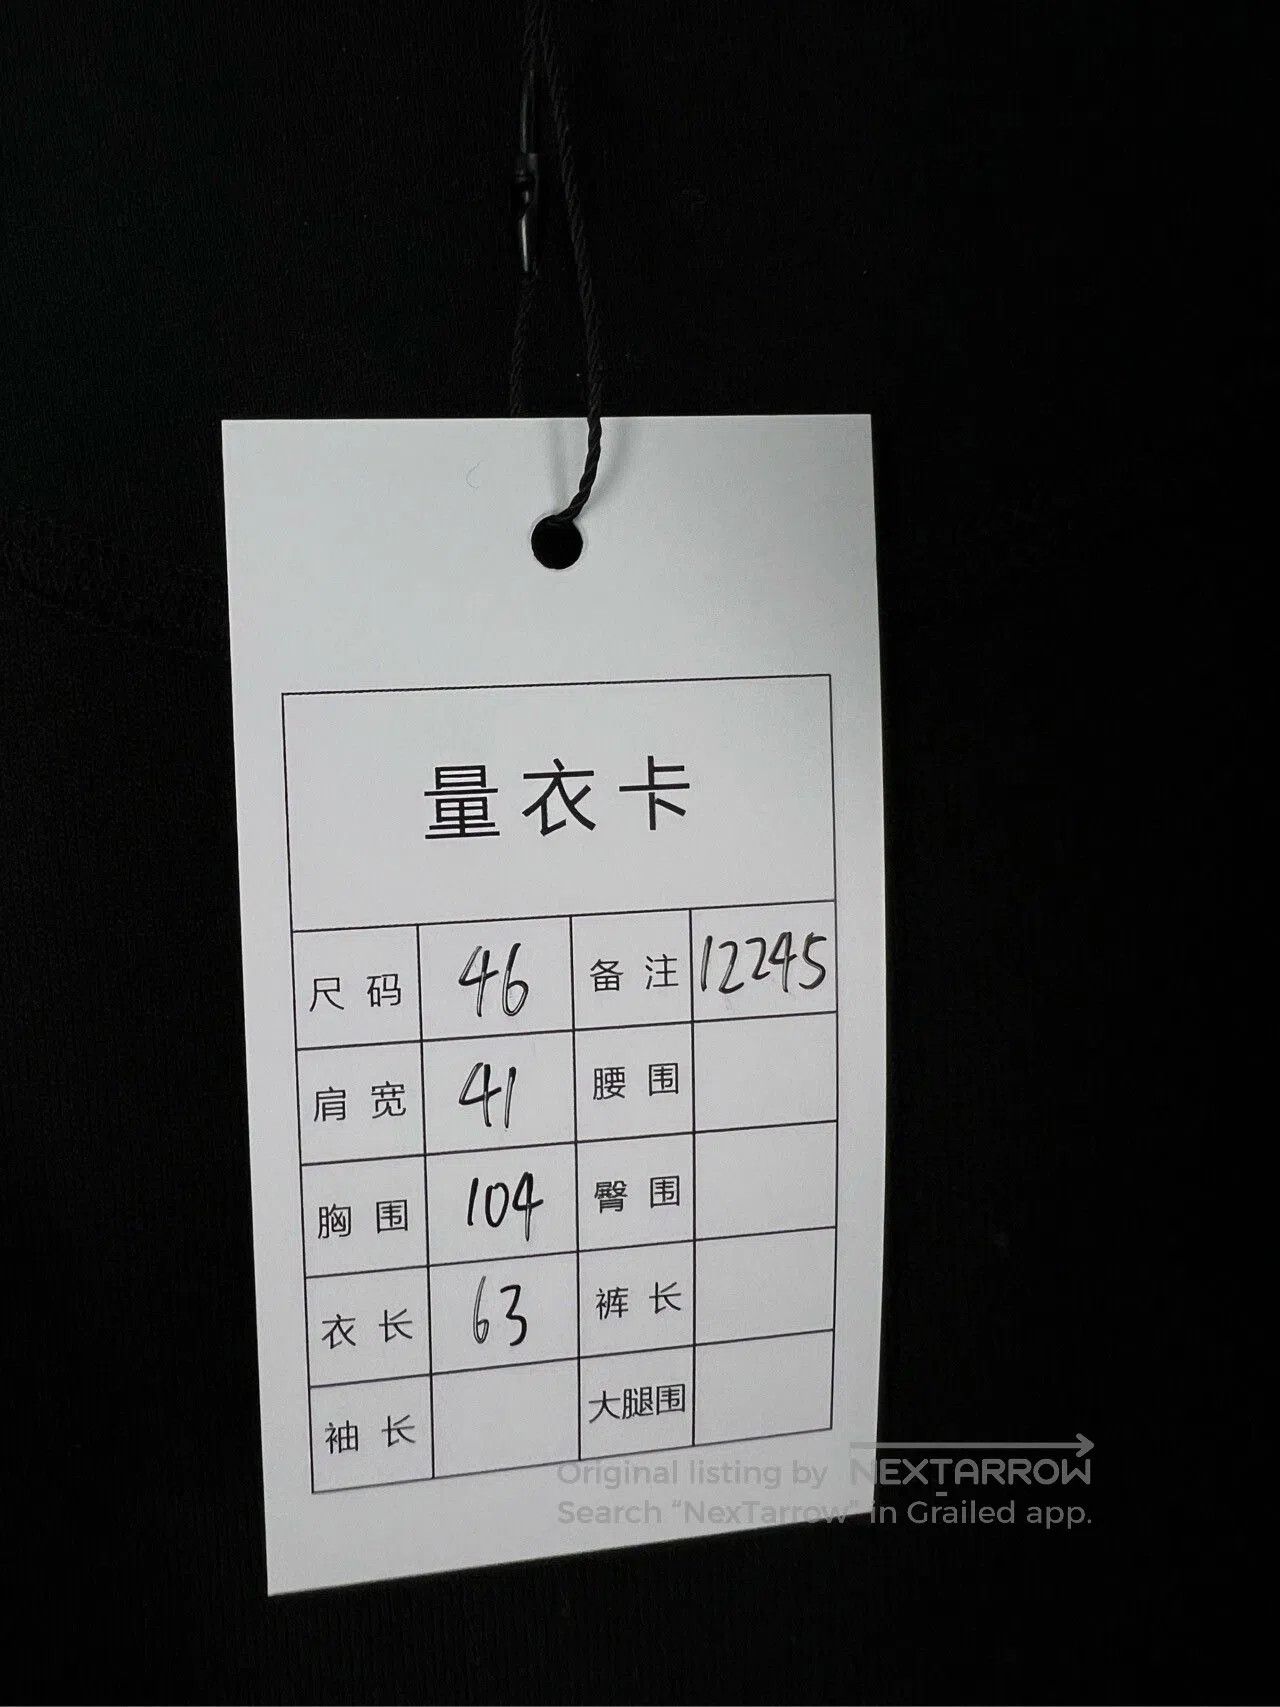 量衣卡
尺码 46 备注 12245
肩宽 41 腰围
胸围 104 臀围
衣长 63 裤长
袖长 大腿围
Original listing by NEXTARROW
Search “NexTarrow” in Grailed app.